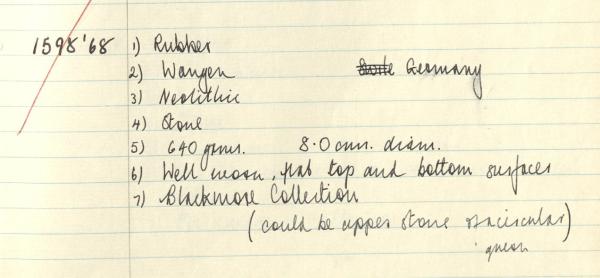 1598'68 1) Rubber
2) Wangen Germany
3) Neolithic
4) Stone
5) 640 gms. 8.0 cms. diam.
6) Well worn, flat top and bottom surfaces
7) Blackmore Collection
(could be upper stone of a circular)
quern